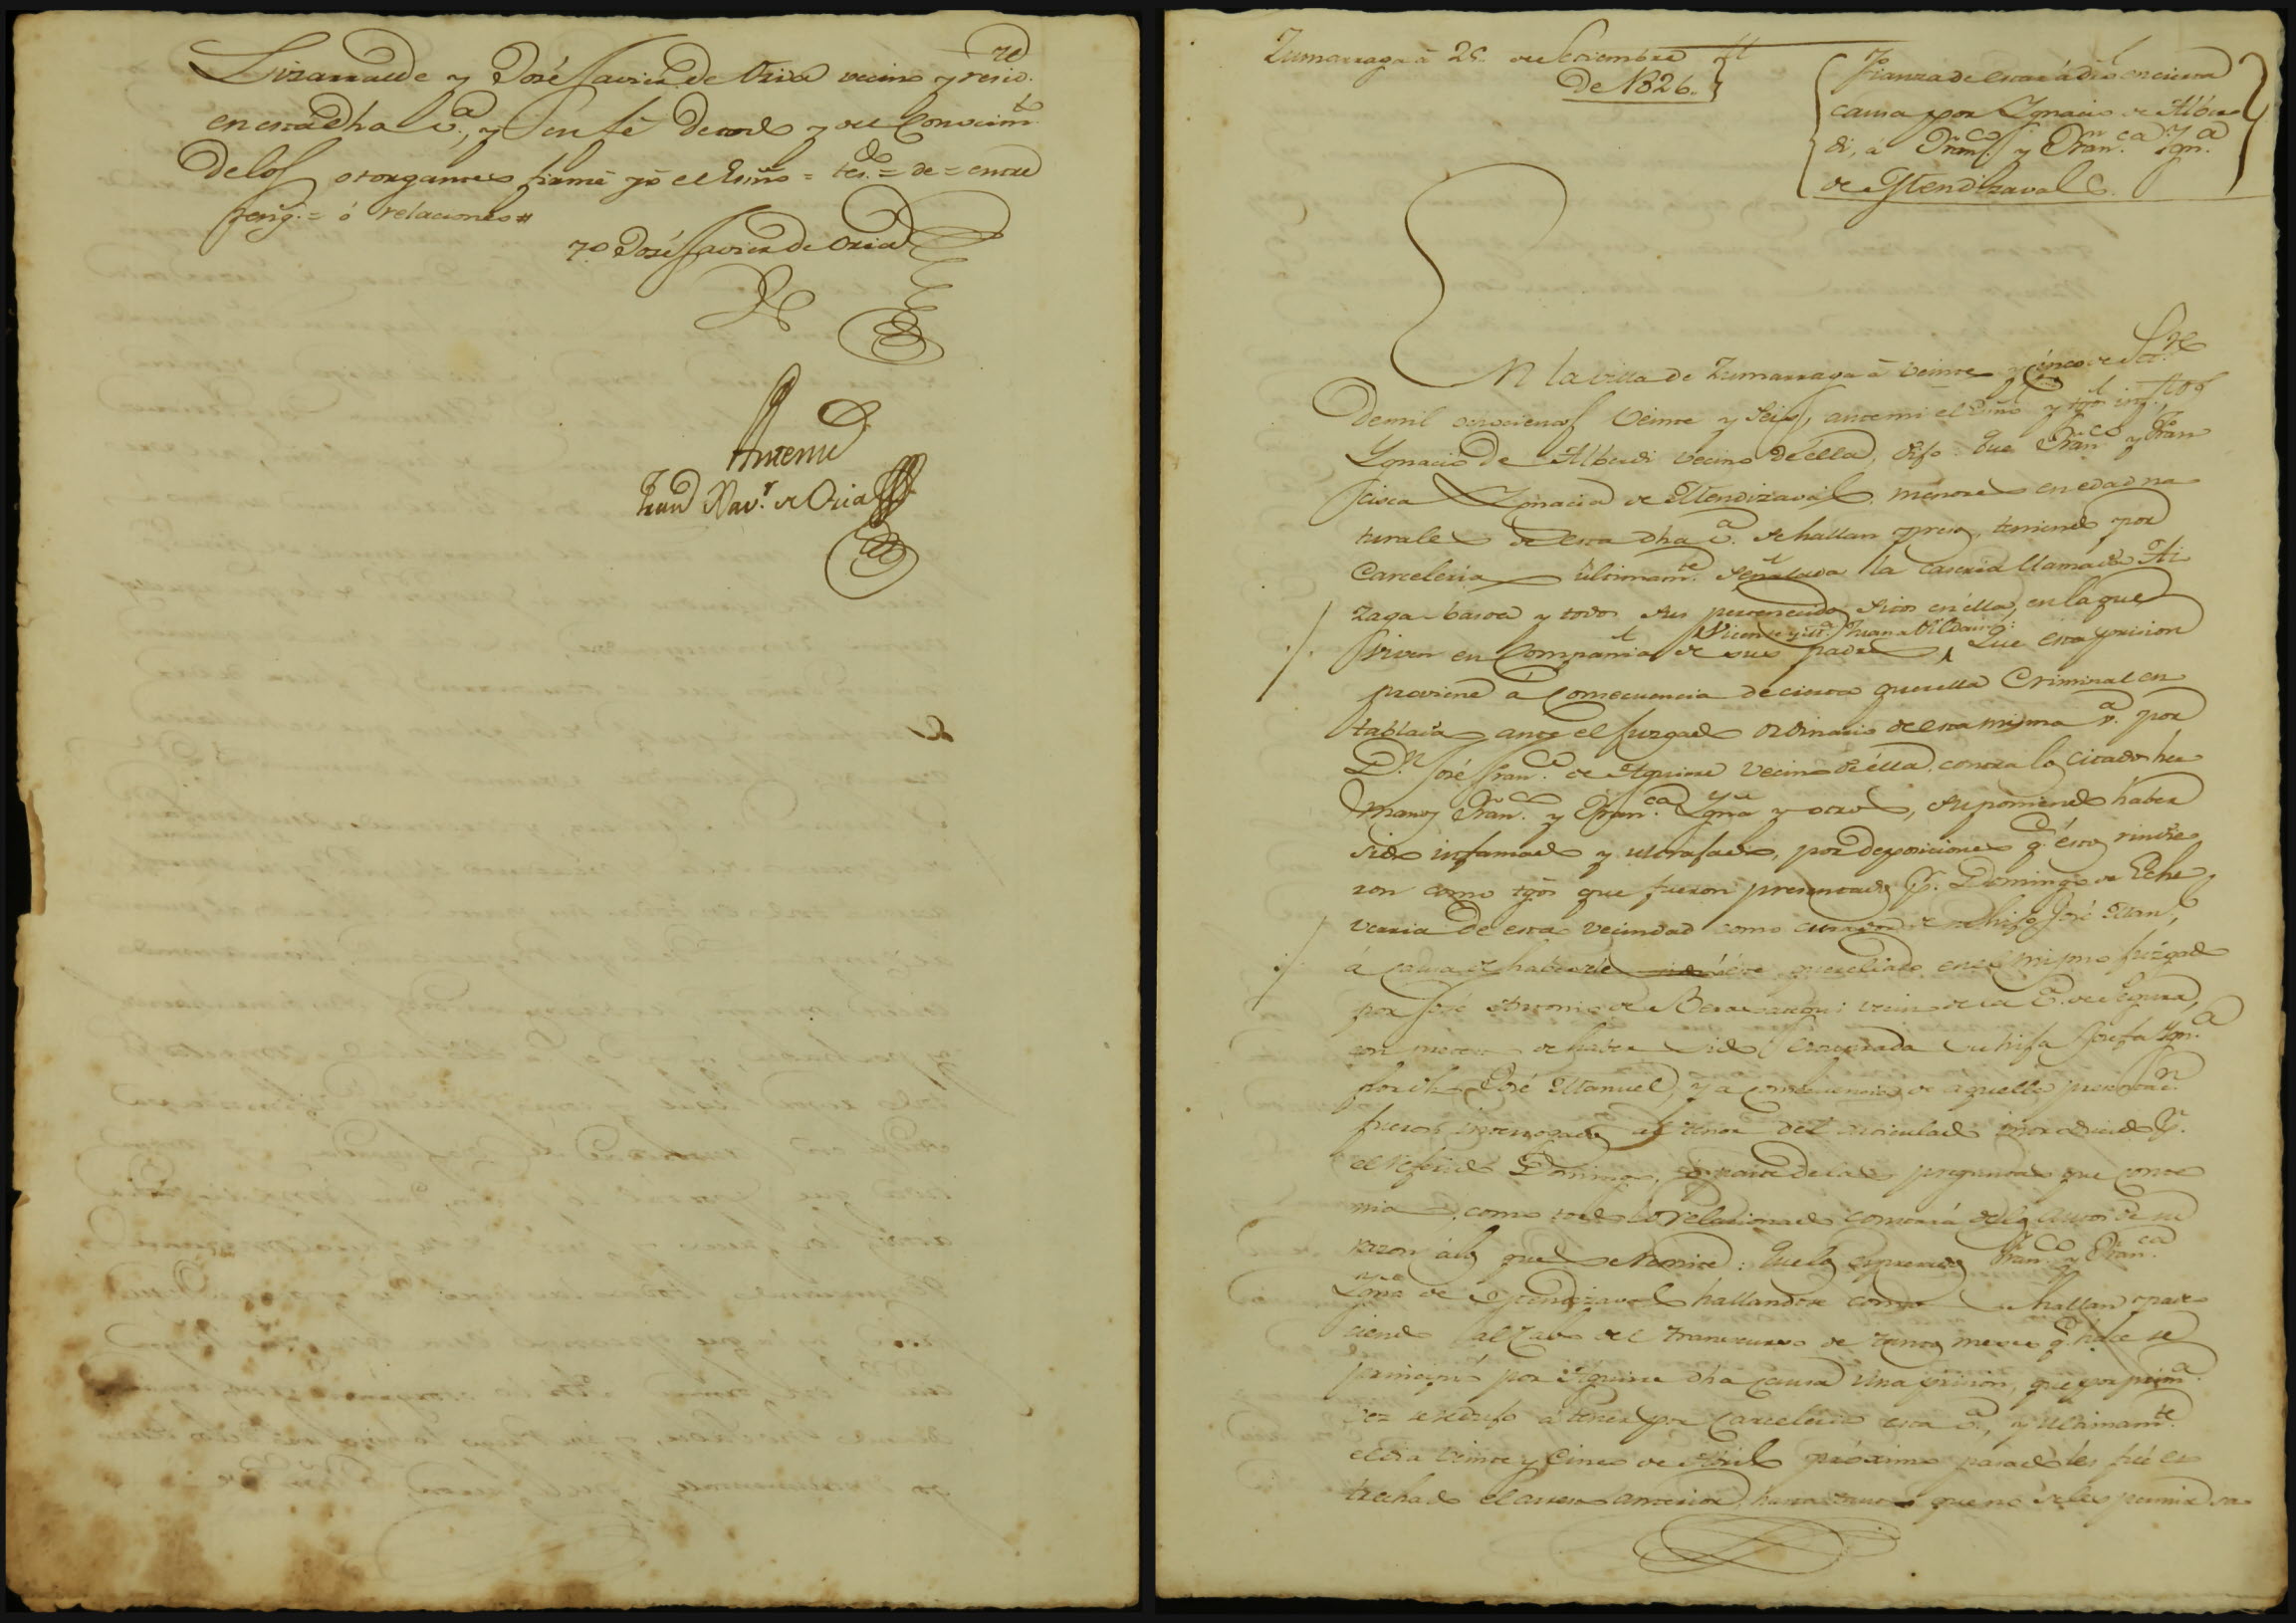 Lizarralde y José Javier de Oria vecinos y resid.
en esta dha v.ª, y en fé de todo y del Conocim.to
de los otorgantes firmé yo el Essno = tes. = de = entre
reng.s = ó relaciones #
T.º José Javier de Oria
Antemi
Juan Xav.r de Oria
Zumarraga á 25 de Setiembre
De 1826.
Fianza de estar á dro en cierta
causa por Ignacio de Alber
di, á Fran.co y Fran.ca Ign.a
de Mendizaval
En la villa de Zumarraga á veinte y cinco de Set.re
de mil ochocientos veinte y seis, ante mi el Essno y tgos
Ygnacio de Alberdi vecino de ella, dijo: Que Fran.co y Fran
cisca Ignacia de Mendizaval menores en edad na
turales de esta dha v.ª se hallan presos, teniendo por
Carceleria ultimam.te señalada la caseria llamada Ai
zaga - basoa y todos sus pertenecidos sitos en ella, en la que
viven en Compañia de sus padres Vicente y Juana Que esta prision
proviene á Consecuencia de cierta querella Criminal en
tablada ante el Juzgado ordinario de esta misma v.ª por
D.n José Fran.co de Aguirre vecino de ella, contra los citados her
manos Fran.co y Fran.ca Igna y otros, suponiendo haber
sido infamado y ultrajado, por deposiciones q.e éstos rindie
ron como tgos que fueron presentados p.r Domingo de Eche
verria de esta vecindad como curador de su hijo José Man,
á causa de haberse éste querellado en el mismo juzgado
por José Antonio de Berasategui vecino de la v.ª de Segura,
con motivo de haber sido su hija Josefa Ign.a
por dho José Manuel, y á consecuencia de aquella presentac.n
fueron interrogados al tenor del articulado introducido p.r
el referido Domingo, parte de las preguntas que conte
nia, como todo lo relacionado constará de los autos de su
razon á los que se remite: Que los expresados Fran.co y Fran.ca
Igna de Mendizaval hallandose como se hallan pade
ciendo al cabo del transcurso de tantos meses q.e hace se
principió por Aguirre dha causa una prision, que por prim.a
vez se redujo á tener por Carceleria esta v.ª, y ultimam.te
el dia veinte y cinco de Abril próximo pasado les fué es
trechado el arresto anterior, hasta tanto que no se les permite sa